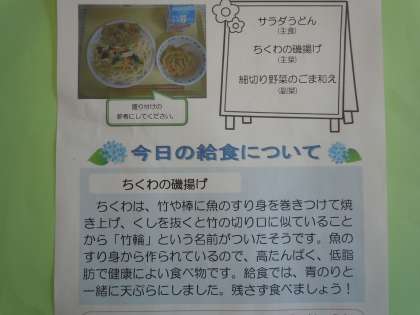 サラダうどん
(主食)
ちくわの磯揚げ
(主菜)
細切り野菜のごま和え
(副菜)
盛り付けの
参考にしてください。
今日の給食について
ちくわの磯揚げ
ちくわは、竹や棒に魚のすり身を巻きつけて焼
き上げ、くしを抜くと竹の切り口に似ていること
から「竹輪」という名前がついたそうです。魚の
すり身から作られているので、高たんぱく、低脂
肪で健康によい食べ物です。給食では、青のりと
一緒に天ぷらにしました。残さず食べましょう！